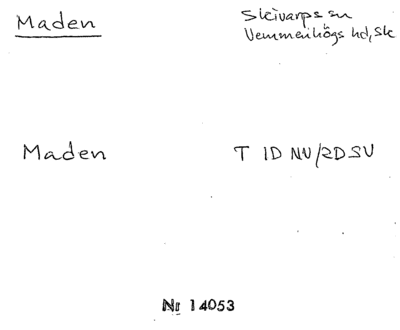 Maden
Skivarps sn
Vemmenhögs hd, Sk
Maden
T 1D NV/2D SV
Nr 14053